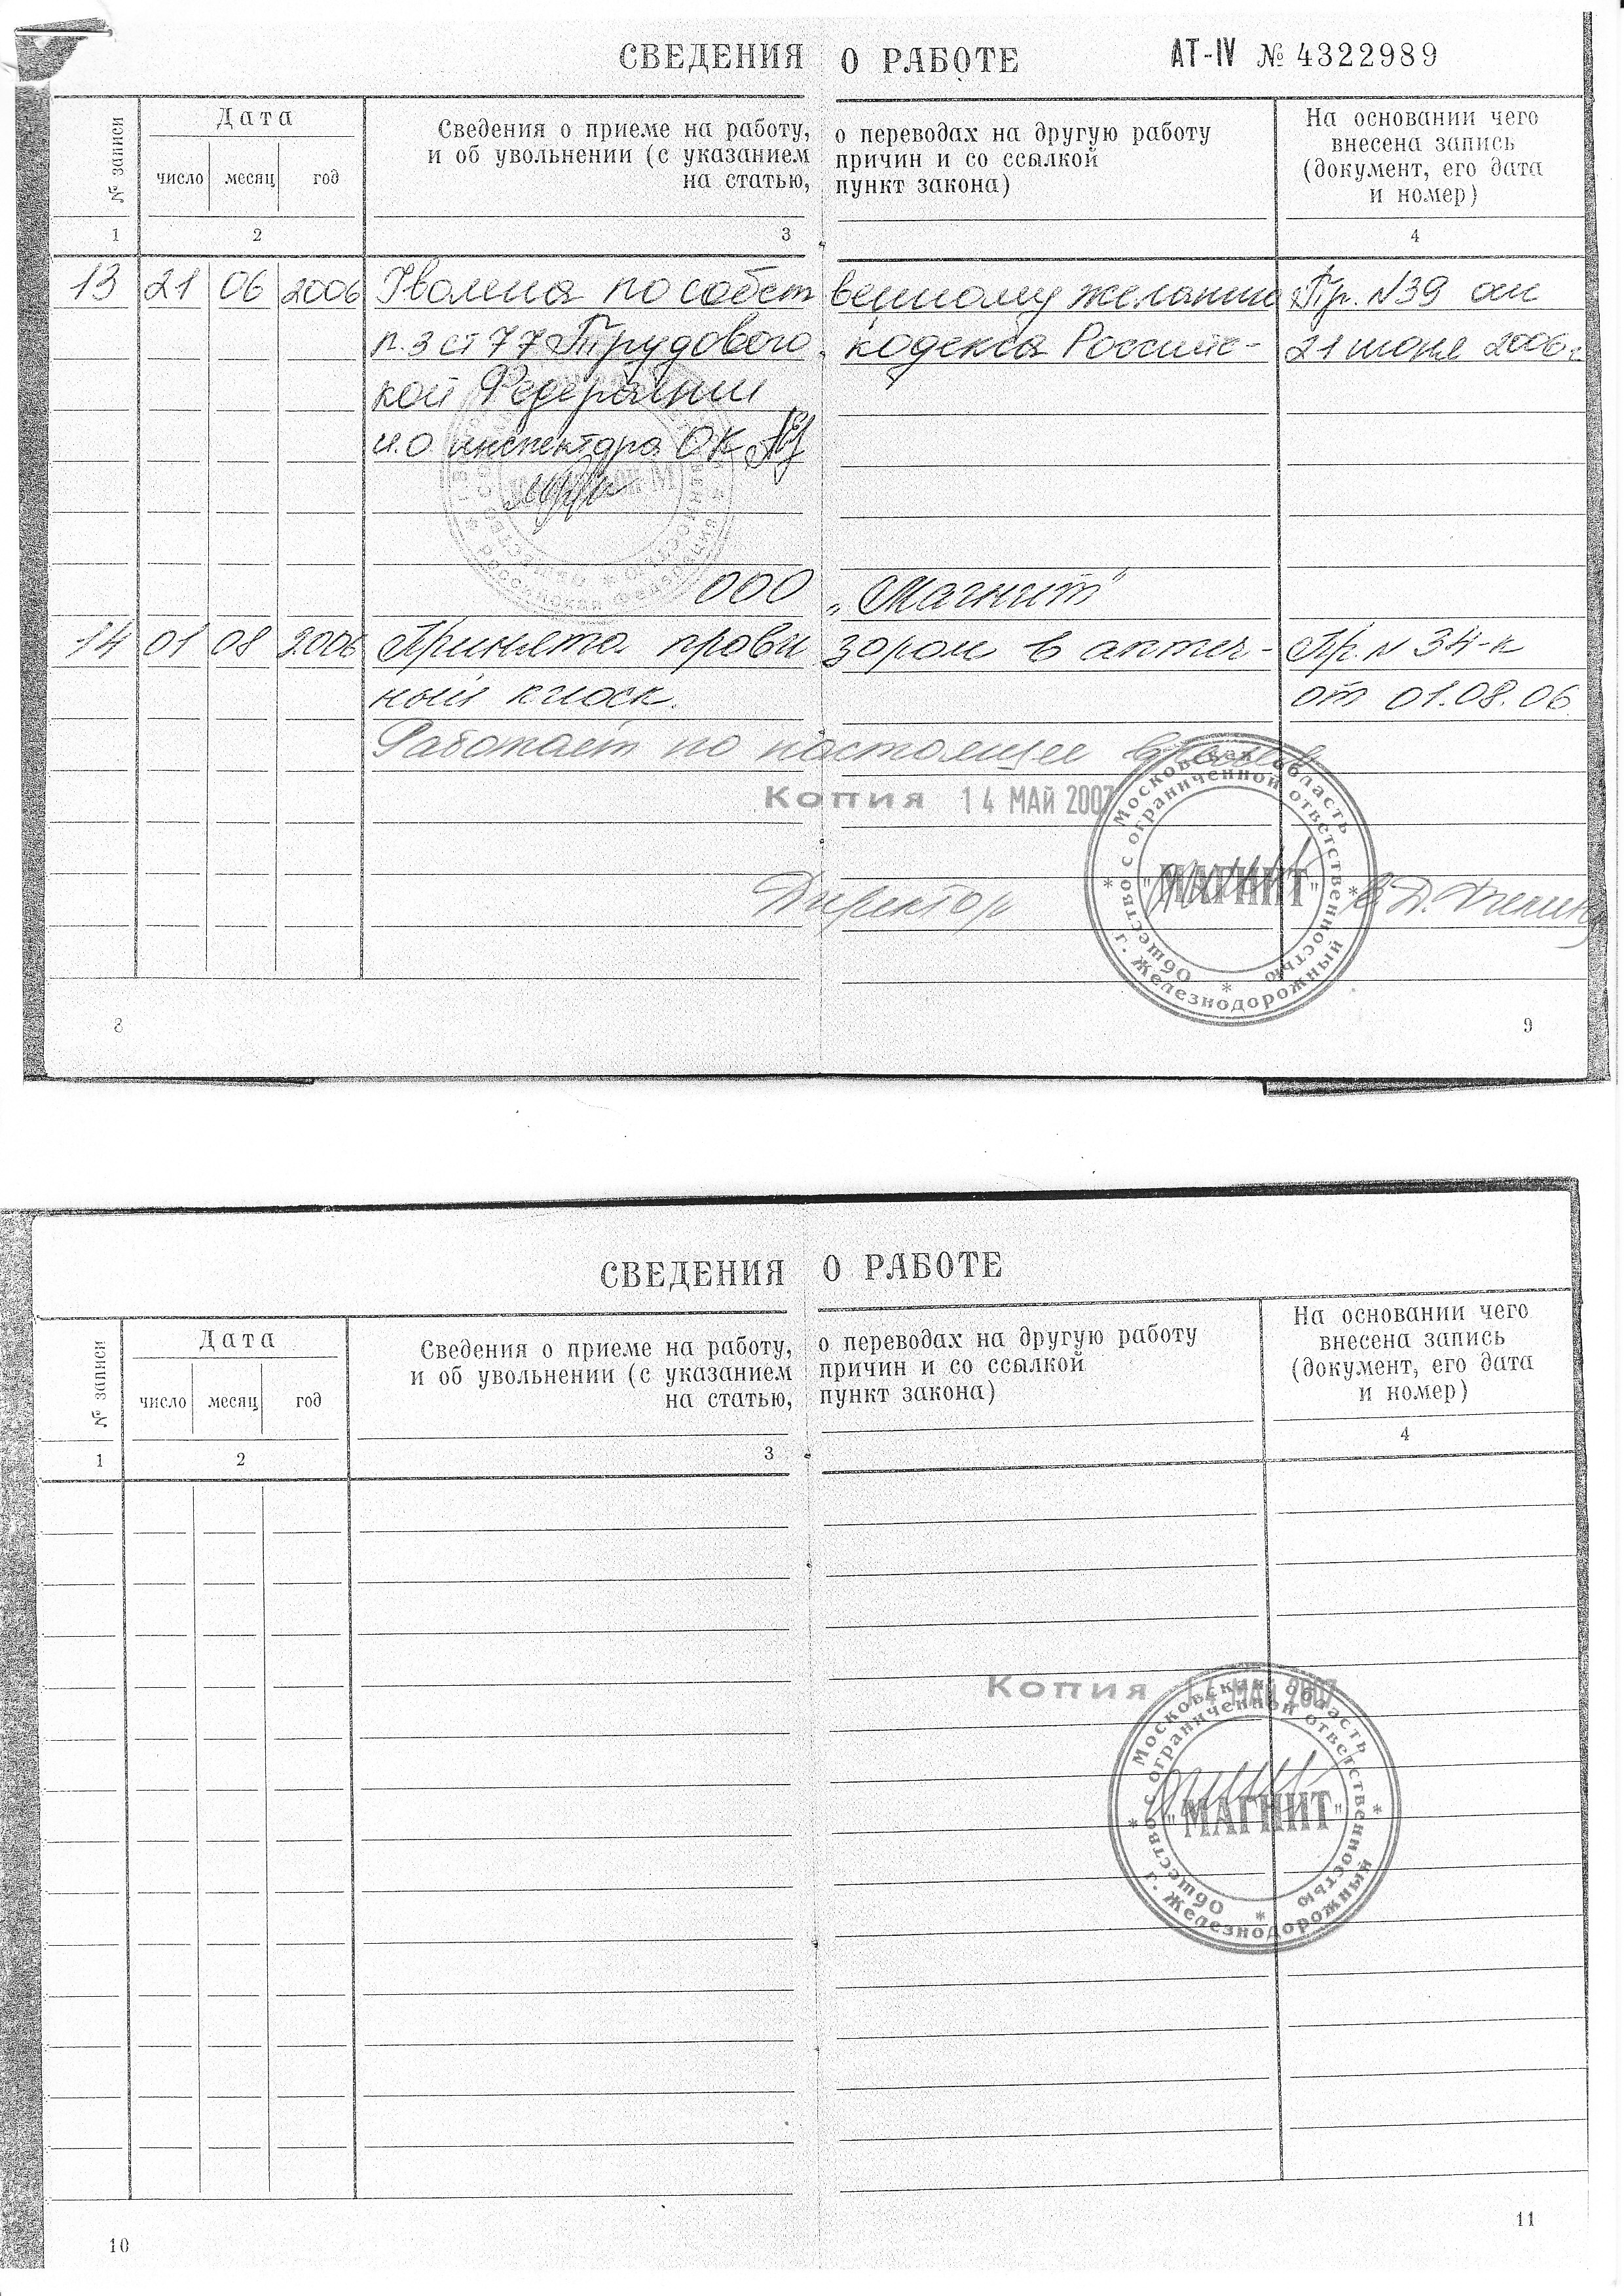 СВЕДЕНИЯ О РАБОТЕ АТ-IV № 4322989
№ записи
Дата
число месяц год
Сведения о приеме на работу, о переводах на другую работу
и об увольнении (с указанием причин и со ссылкой
на статью, пункт закона)
На основании чего
внесена запись
(документ, его дата
и номер)
1 2 3 4
13 21 06 2006 Уволена по собственному желанию Пр. N39 от
п.3 ст 77 Трудового кодекса Российс- 21 июня 2006г.
кой Федерации
и.о инспектора ОК
Российская Федерация
ООО „Магнит"
14 01 08 2006 Принята провизором в аптеч- Пр. N 34-к
ный киоск. от 01.08.06
Работает по настоящее время
Копия 14 МАЙ 2007
Московская область
Общество с ограниченной ответственностью
"МАГНИТ"
г. Железнодорожный
Директор
8 9
СВЕДЕНИЯ О РАБОТЕ
№ записи
Дата
число месяц год
Сведения о приеме на работу, о переводах на другую работу
и об увольнении (с указанием причин и со ссылкой
на статью, пункт закона)
На основании чего
внесена запись
(документ, его дата
и номер)
1 2 3 4
Копия 14 МАЙ 2007
Московская область
Общество с ограниченной ответственностью
"МАГНИТ"
г. Железнодорожный
10 11